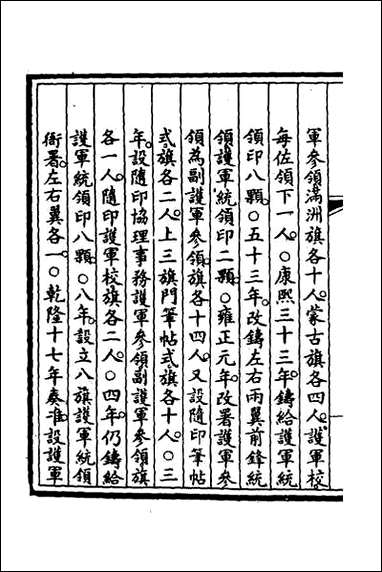 軍參領滿洲旗各十人蒙古旗各四人護軍校
每佐領下一人○康熙三十三年鑄給護軍統
領印八顆○五十三年改鑄左右兩翼前鋒統
領護軍統領印二顆○雍正元年改署護軍參
領為副護軍參領旗各十四人又設隨印筆帖
式旗各二人上三旗門筆帖式旗各十人○三
年設隨印協理事務護軍參領副護軍參領旗
各一人隨印護軍校旗各二人○四年仍鑄給
護軍統領印八顆○八年設立八旗護軍統領
衙署左右翼各一○乾隆十七年奏准設護軍